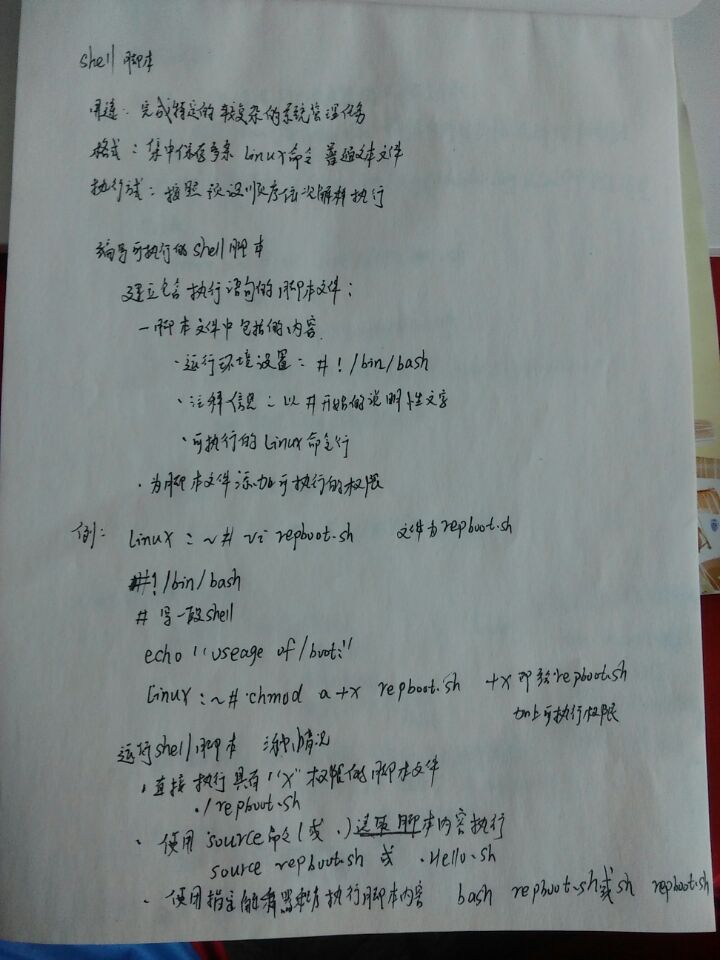 shell 脚本
用途:完成特定的较复杂的系统管理任务
格式:集中保存多条 Linux命令 普通文本文件
执行方式:按照预设顺序依次解释执行
编写可执行的shell脚本
建立包含执行语句的脚本文件:
一脚本文件中包括的内容
·运行环境设置:#!/bin/bash
·注释信息:以#开始的说明性文字
·可执行的Linux命令行
·为脚本文件添加可执行的权限
例: Linux:~# vi repboot.sh 文件为repboot.sh
#!/bin/bash
# 写一段shell
echo "useage of /boot:"
Linux:~# chmod a+x repboot.sh +x 即给repboot.sh
加上可执行权限
运行shell脚本 情况
·直接执行具有"x"权限的脚本文件
./repboot.sh
·使用source命令(或 .)读取脚本内容执行
source repboot.sh 或 . Hello.sh
·使用指定解释器程序执行脚本内容 bash repboot.sh或sh repboot.sh